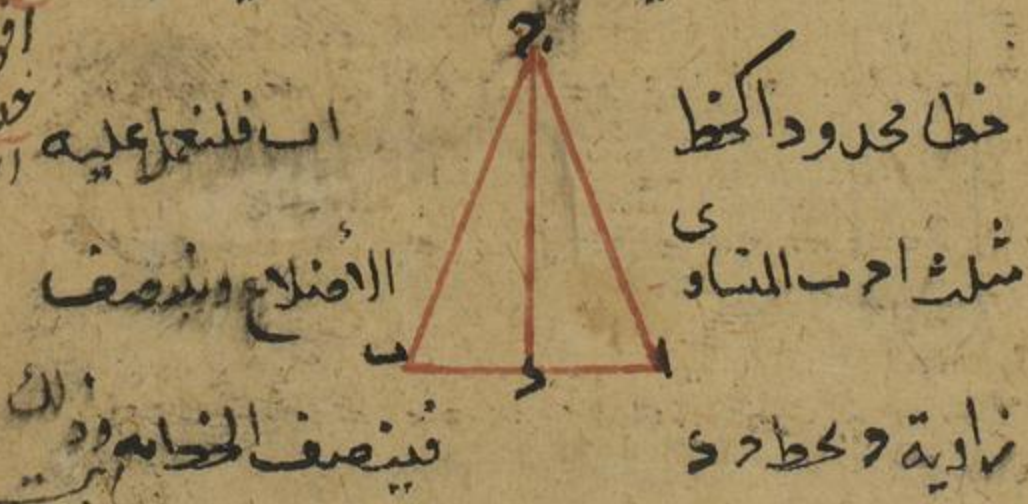 خطا محدودا كخط اب فلنعمل عليه
مثلث ا ح ب المتساوى الأضلاع وينصف
زاوية ح بخط ح د فينصف الخط به وذلك
ح
ب
د
ا